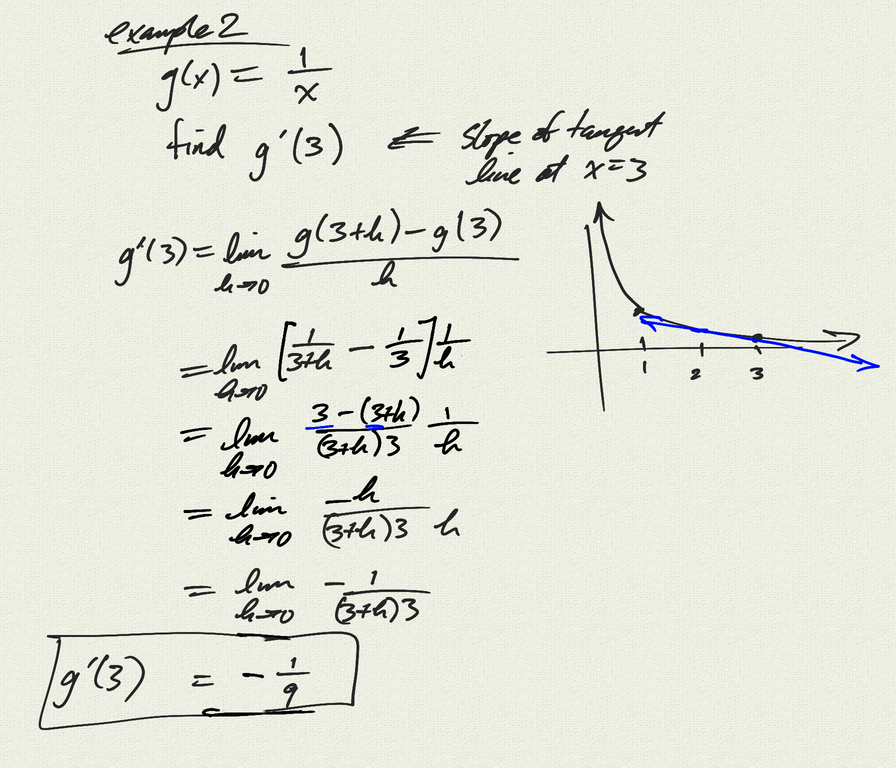 example 2
g(x) = 1/x
find g'(3) ⇐ slope of tangent
line at x=3
g'(3) = lim h→0 (g(3+h) - g(3))/h
= lim h→0 [1/(3+h) - 1/3] 1/h
= lim h→0 (3-(3+h))/((3+h)3) 1/h
= lim h→0 -h/((3+h)3 h)
= lim h→0 -1/((3+h)3)
g'(3) = -1/9
1 2 3